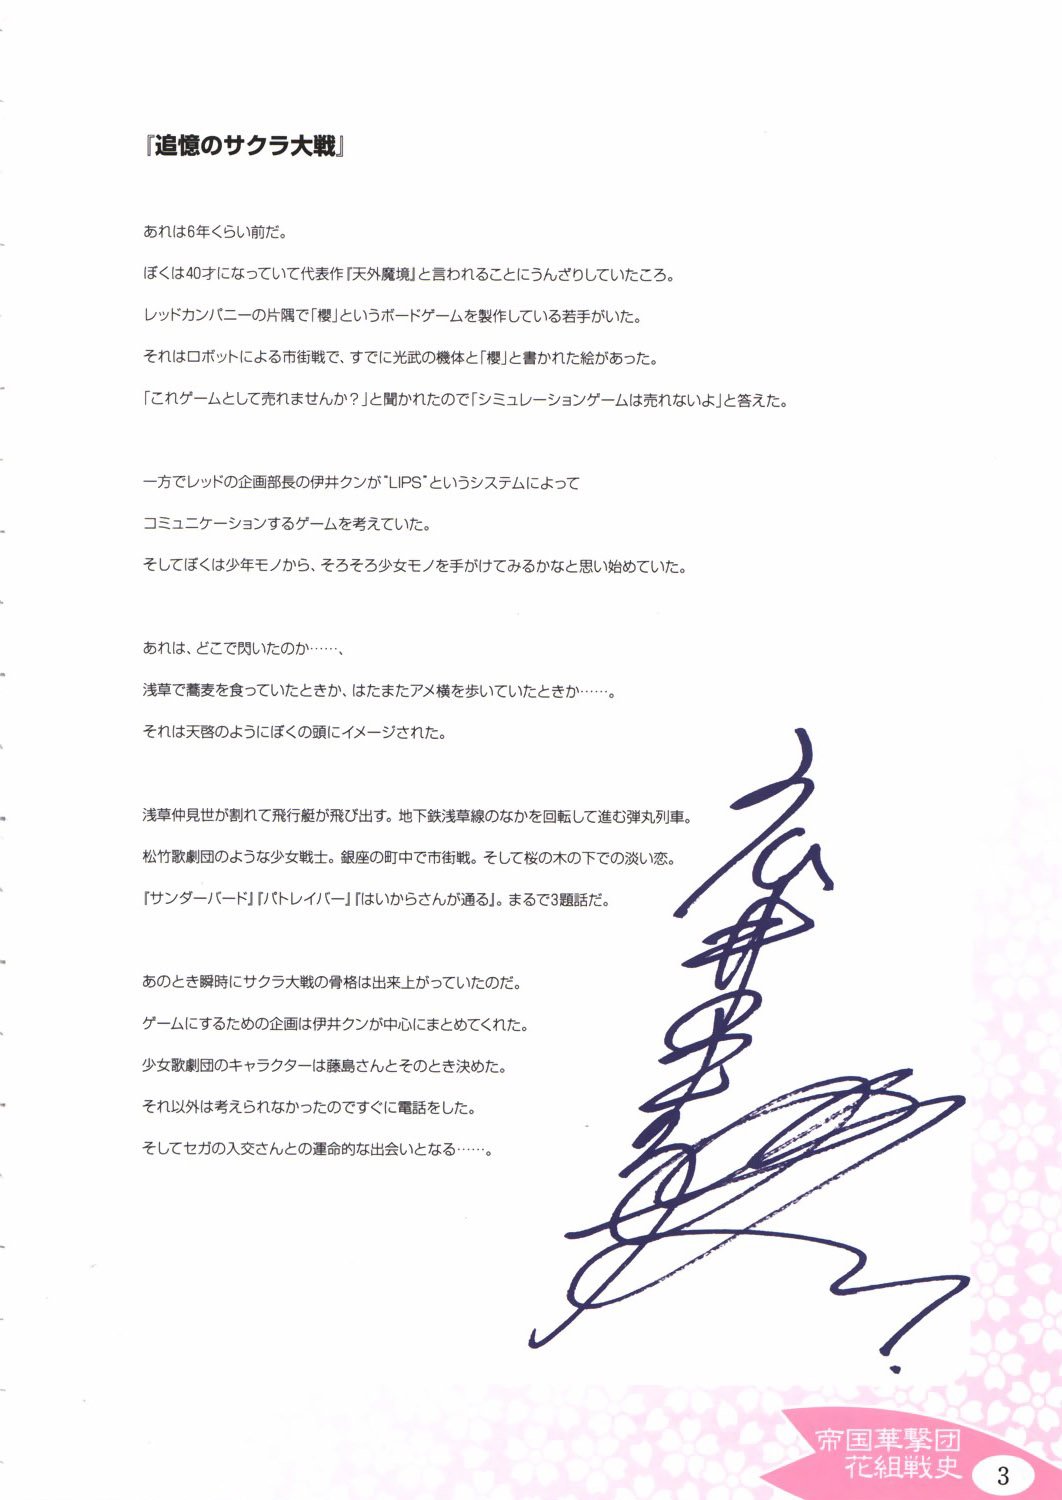 『追憶のサクラ大戦』
あれは6年くらい前だ。
ぼくは40才になっていて代表作『天外魔境』と言われることにうんざりしていたころ。
レッドカンパニーの片隅で「櫻」というボードゲームを製作している若手がいた。
それはロボットによる市街戦で、すでに光武の機体と「櫻」と書かれた絵があった。
「これゲームとして売れませんか？」と聞かれたので「シミュレーションゲームは売れないよ」と答えた。
一方でレッドの企画部長の伊井クンが"LIPS"というシステムによって
コミュニケーションするゲームを考えていた。
そしてぼくは少年モノから、そろそろ少女モノを手がけてみるかなと思い始めていた。
あれは、どこで閃いたのか……、
浅草で蕎麦を食っていたときか、はたまたアメ横を歩いていたときか……。
それは天啓のようにぼくの頭にイメージされた。
浅草仲見世が割れて飛行艇が飛び出す。地下鉄浅草線のなかを回転して進む弾丸列車。
松竹歌劇団のような少女戦士。銀座の町中で市街戦。そして桜の木の下での淡い恋。
『サンダーバード』『パトレイバー』『はいからさんが通る』。まるで3題話だ。
あのとき瞬時にサクラ大戦の骨格は出来上がっていたのだ。
ゲームにするための企画は伊井クンが中心にまとめてくれた。
少女歌劇団のキャラクターは藤島さんとそのとき決めた。
それ以外は考えられなかったのですぐに電話をした。
そしてセガの入交さんとの運命的な出会いとなる……。
帝国華撃団
花組戦史
3